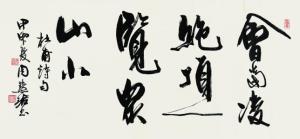 會當凌
絕頂一
覽眾
山小
杜甫詩句
甲申夏周慧珺